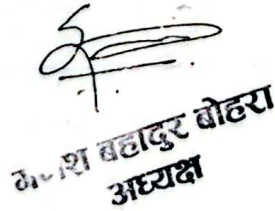 बहादुर बोहरा
अध्यक्ष